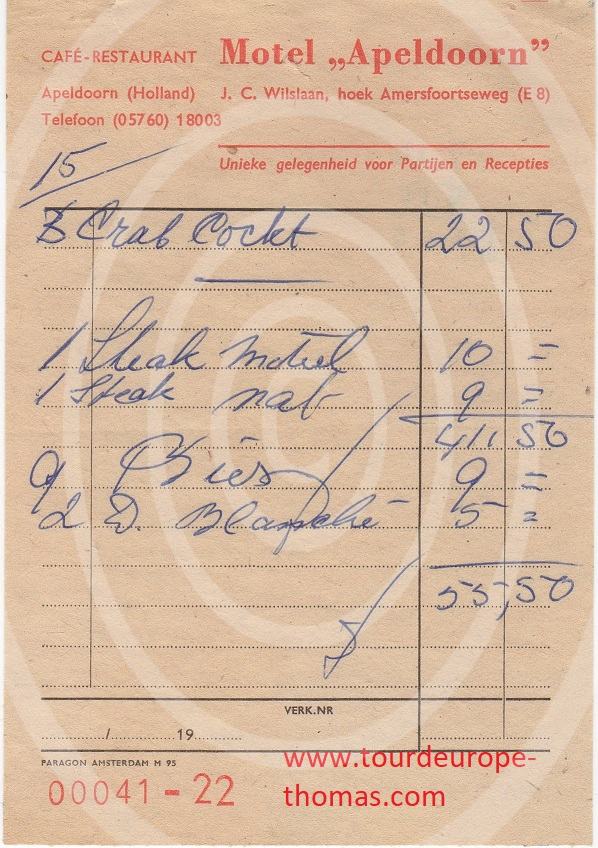 CAFÉ-RESTAURANT Motel „Apeldoorn”
Apeldoorn (Holland) J. C. Wilslaan, hoek Amersfoortseweg (E 8)
Telefoon (05760) 18003
Unieke gelegenheid voor Partijen en Recepties
15
Crab Cockt 22 50
1 Steak Motel 10 =
1 Steak nat 9 =
41 50
9 Bier 9 =
2 D. Blanche 5 =
55,50
VERK.NR
/ 19
PARAGON AMSTERDAM M 95
00041 - 22
www.tourdeurope-
thomas.com